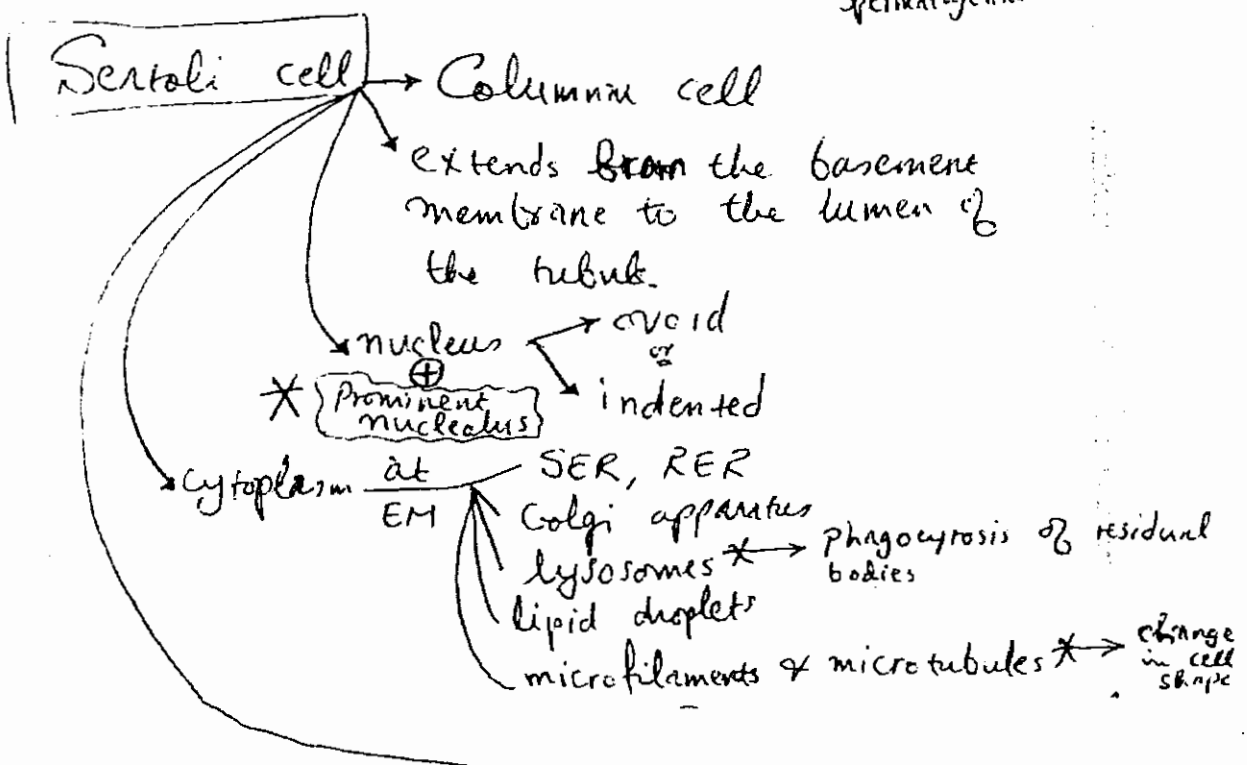 Sertoli cell → Columnar cell
extends from the basement
membrane to the lumen of
the tubule.
nucleus → ovoid
or
indented
⊕
* Prominent
nucleolus
cytoplasm at EM
SER, RER
Golgi apparatus
lysosomes * → phagocytosis of residual
bodies
lipid droplets
microfilaments & microtubules * → change
in cell
shape